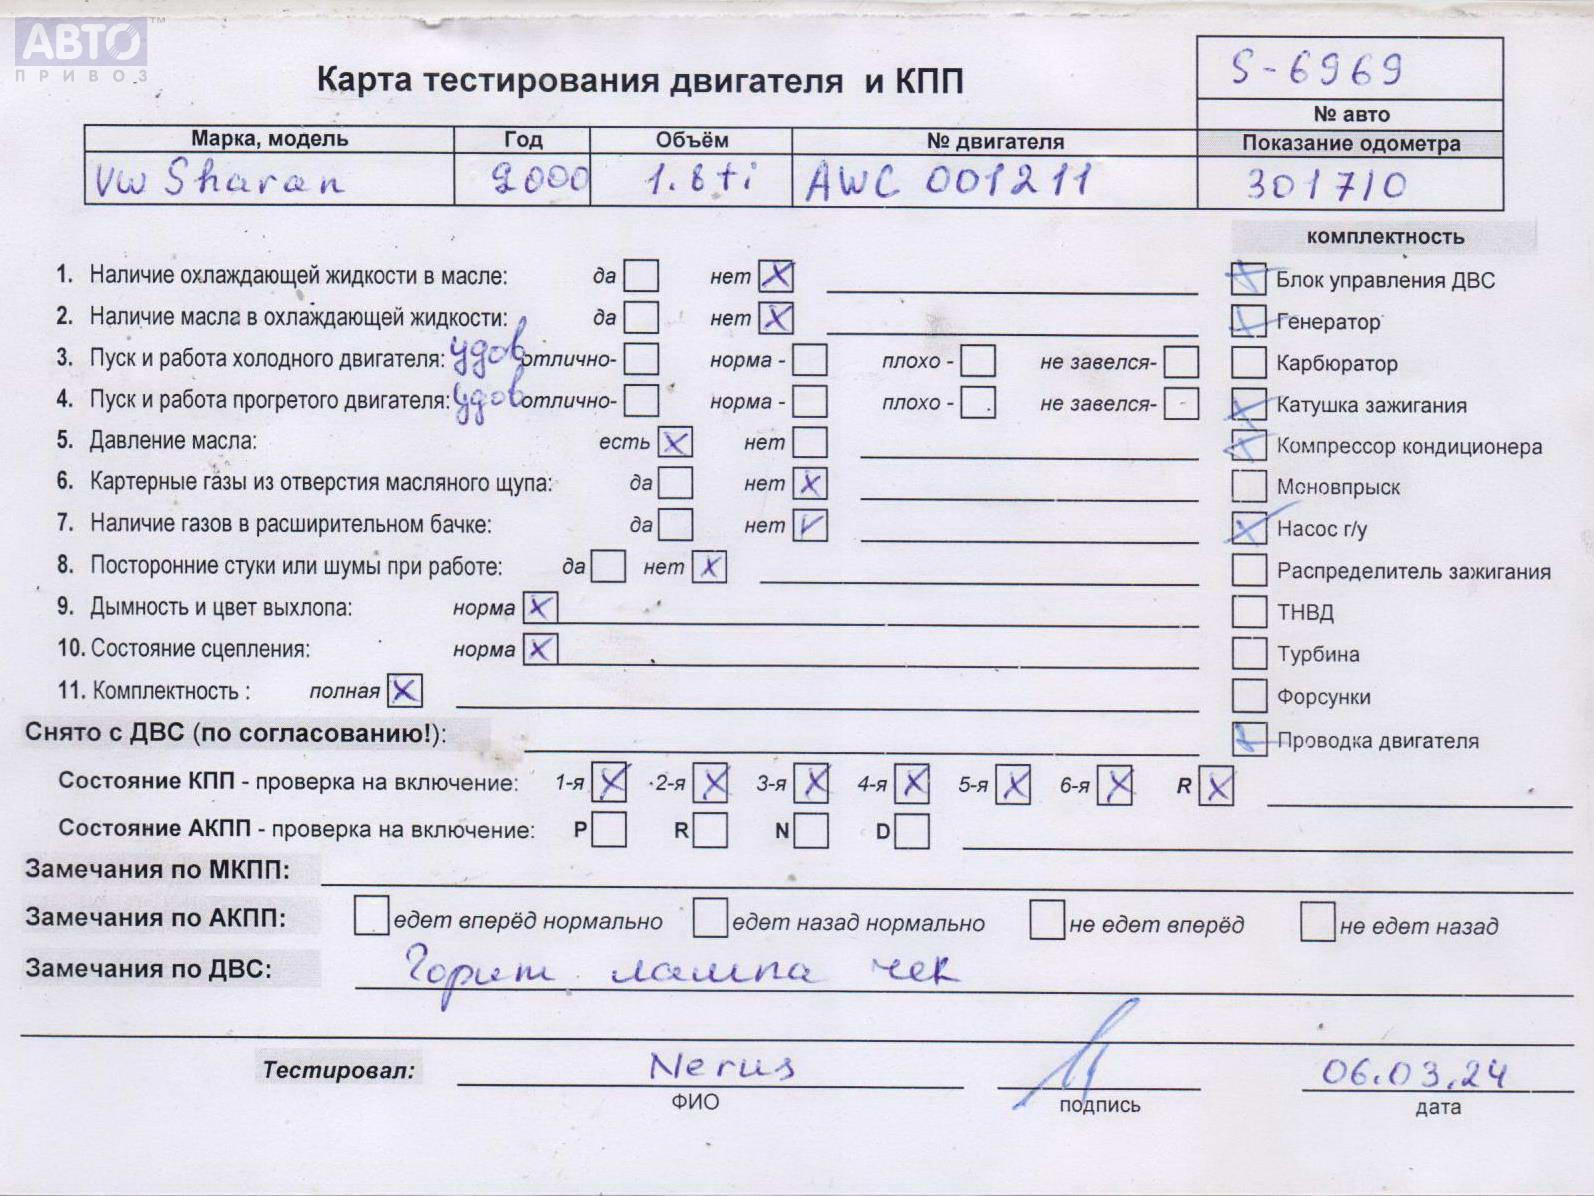 АВТО™
ПРИВОЗ
Карта тестирования двигателя и КПП
S-6969
№ авто
Марка, модель Год Объём № двигателя Показание одометра
VW Sharan 2000 1.8 ti AWC 001211 301710
комплектность
1. Наличие охлаждающей жидкости в масле: да нет X
Блок управления ДВС
2. Наличие масла в охлаждающей жидкости: да нет X
Генератор
3. Пуск и работа холодного двигателя: удов отлично- норма - плохо - не завелся-
Карбюратор
4. Пуск и работа прогретого двигателя: удов отлично- норма - плохо - не завелся-
Катушка зажигания
5. Давление масла: есть X нет
Компрессор кондиционера
6. Картерные газы из отверстия масляного щупа: да нет X
Моновпрыск
7. Наличие газов в расширительном бачке: да нет V
Насос г/у
8. Посторонние стуки или шумы при работе: да нет X
Распределитель зажигания
9. Дымность и цвет выхлопа: норма X
ТНВД
10. Состояние сцепления: норма X
Турбина
11. Комплектность : полная X
Форсунки
Снято с ДВС (по согласованию!):
Проводка двигателя
Состояние КПП - проверка на включение: 1-я X 2-я X 3-я X 4-я X 5-я X 6-я X R X
Состояние АКПП - проверка на включение: P R N D
Замечания по МКПП:
Замечания по АКПП: едет вперёд нормально едет назад нормально не едет вперёд не едет назад
Замечания по ДВС: Горит лампа чек
Тестировал: Nerus 06.03.24
ФИО подпись дата